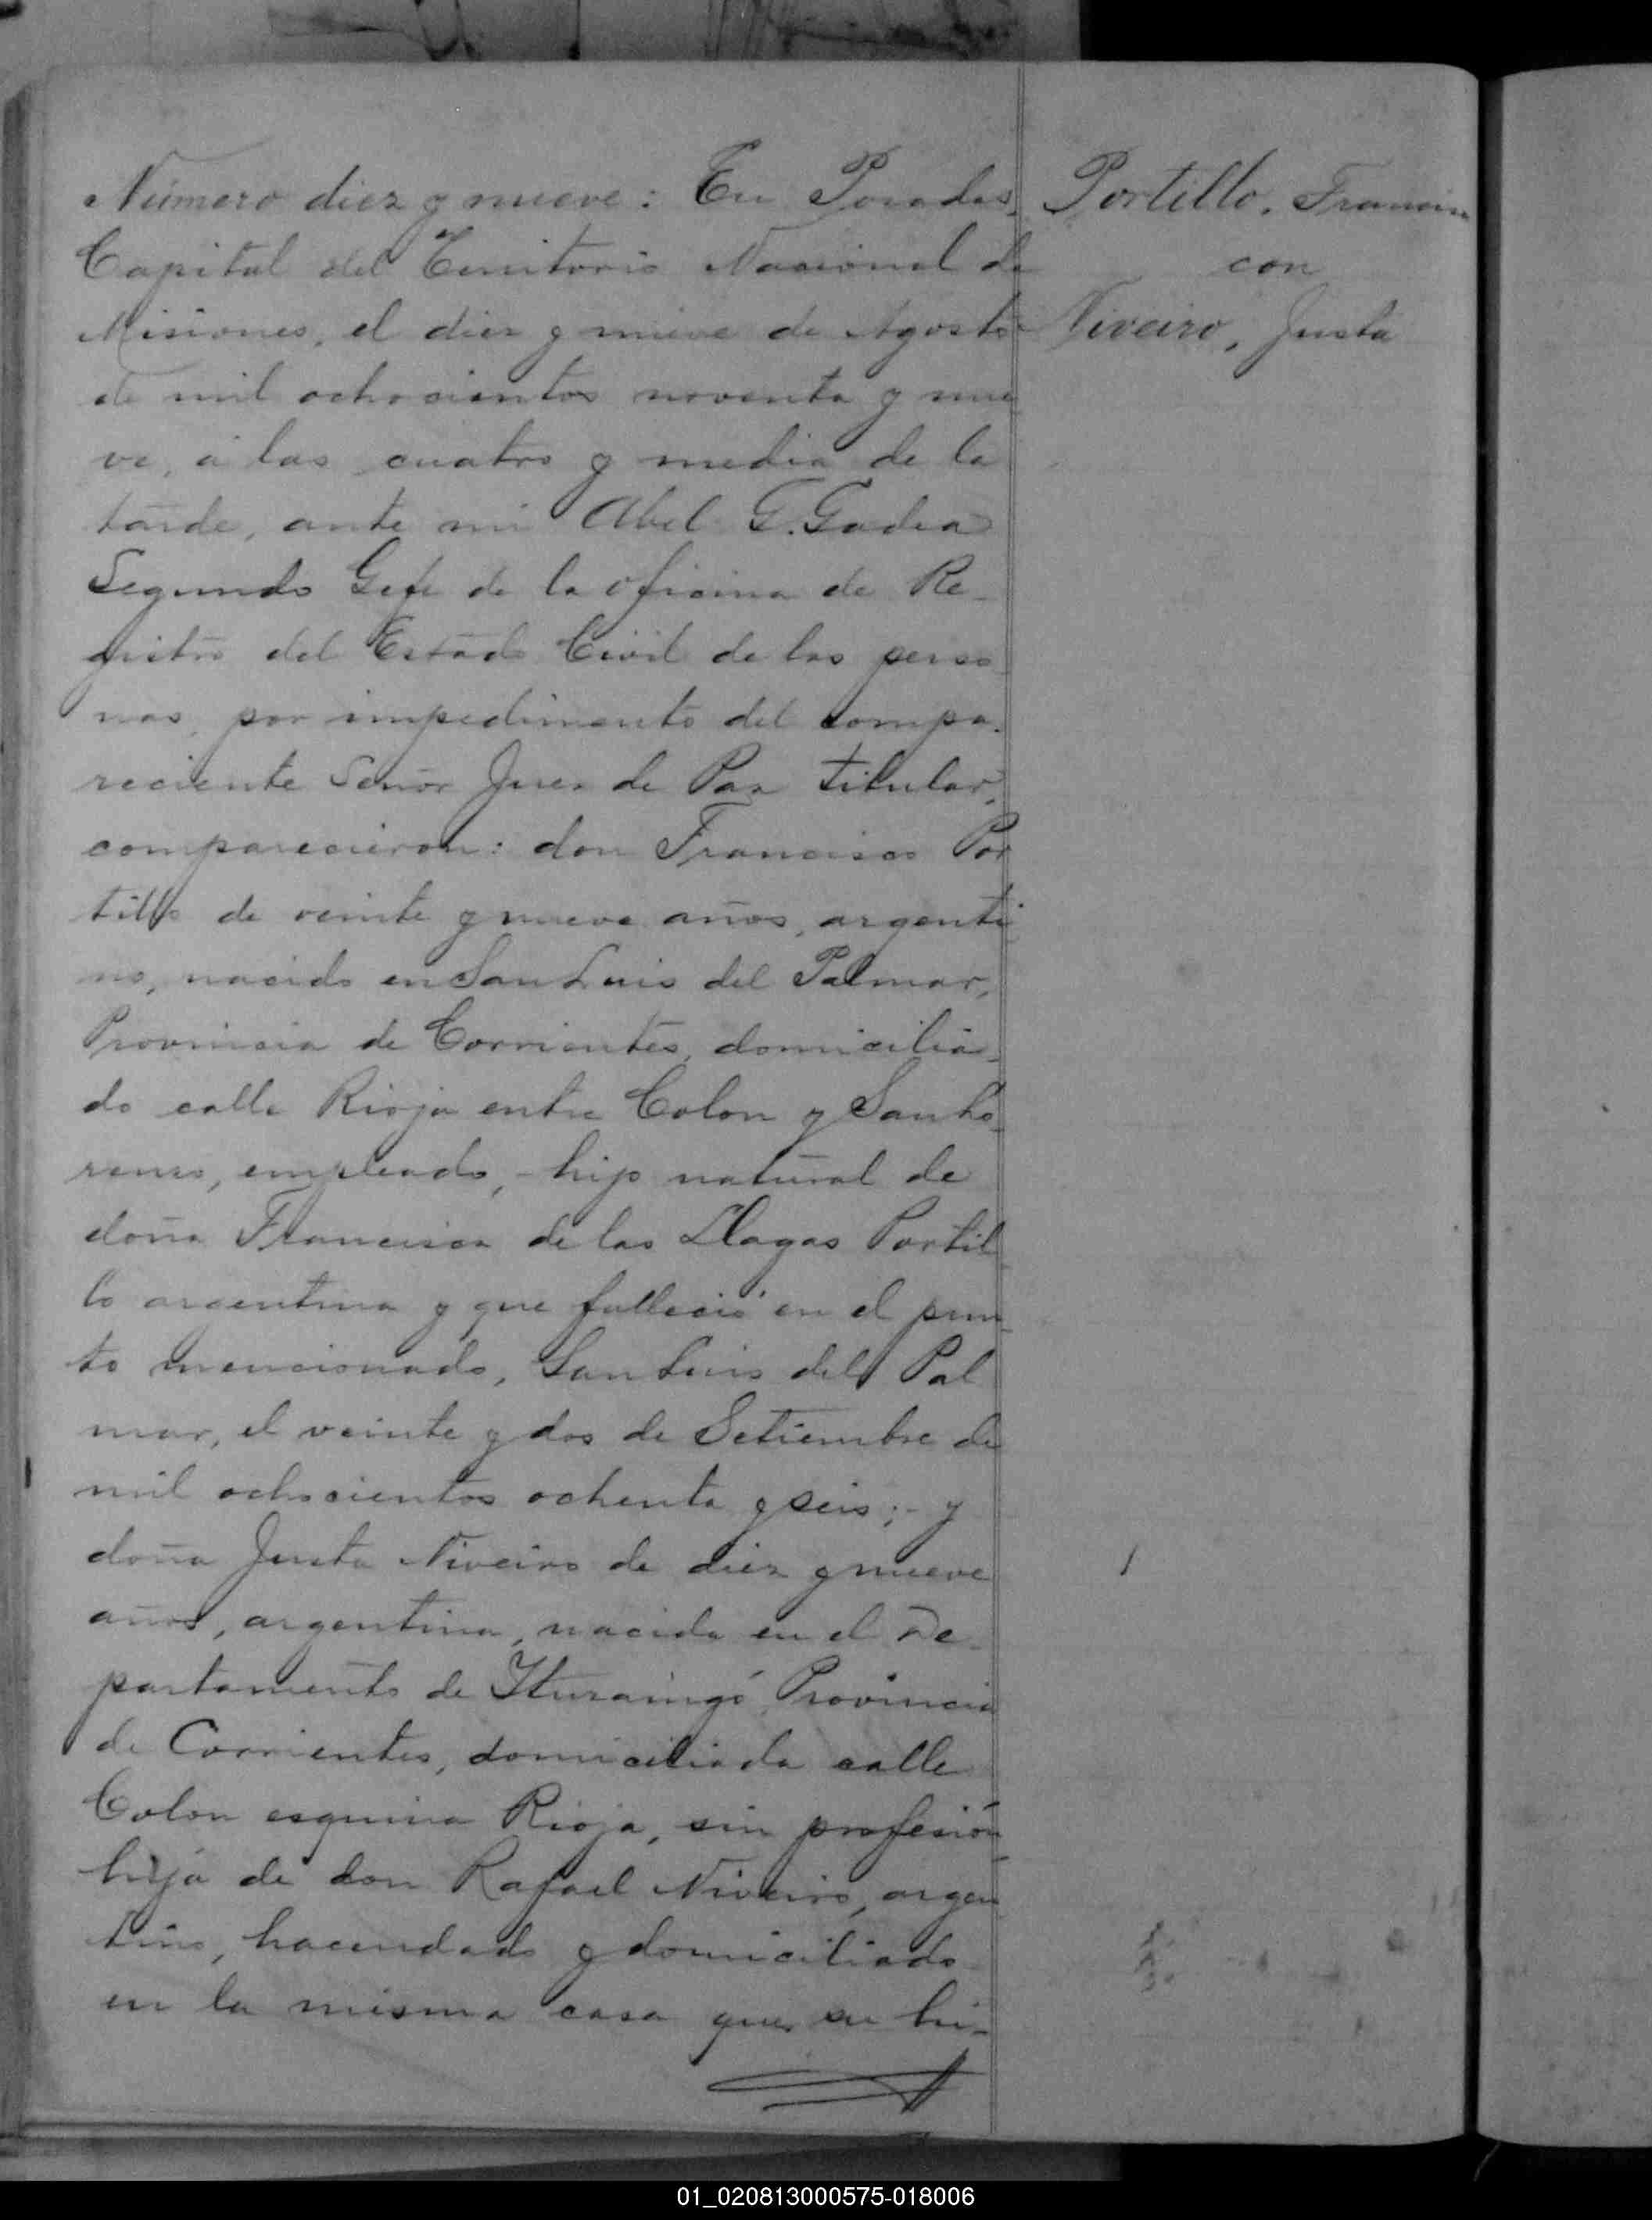 Número diez y nueve: En Posadas,
Capital del Territorio Nacional de
Misiones, el diez y nueve de Agosto
de mil ochocientos noventa y nue
ve, á las cuatro y media de la
tarde, ante mi Abel G. Godea
Segundo Gefe de la oficina de Re-
gistro del Estado Civil de las perso
nas, por impedimento del compa-
reciente Señor Juez de Paz titular,
comparecieron: don Francisco Por
tillo de veinte y nueve años, argenti
no, nacido en San Luis del Palmar,
Provincia de Corrientes, domicilia-
do calle Rioja entre Colon y San Lo-
renzo, empleado, - hijo natural de
doña Francisca de las Llagas Portil
lo argentina y que falleció en el pun-
to mencionado, San Luis del Pal
mar, el veinte y dos de Setiembre de
mil ochocientos ochenta y seis; - y
doña Justa Niveiro de diez y nueve
años, argentina, nacida en el De-
partamento de Ituraingó Provincia
de Corrientes, domiciliada calle
Colon esquina Rioja, sin profesión
hija de don Rafael Niveiro, argen
tino, hacendado y domiciliado
en la misma casa que su hi-
Portillo, Francisco
con
Niveiro, Justa
01_020813000575-018006